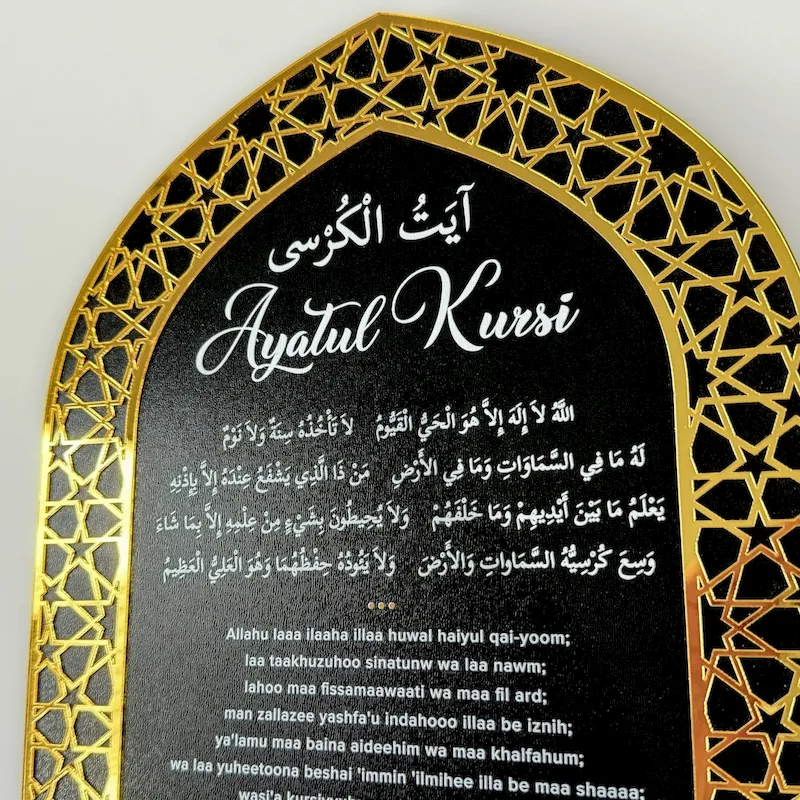 آيَتُ الْكُرْسى
Ayatul Kursi
اللَّهُ لاَ إِلَهَ إِلاَّ هُوَ الْحَيُّ الْقَيُّومُ لاَ تَأْخُذُهُ سِنَةٌ وَلاَ نَوْمٌ
لَهُ مَا فِي السَّمَاوَاتِ وَمَا فِي الأَرْضِ مَنْ ذَا الَّذِي يَشْفَعُ عِنْدَهُ إِلاَّ بِإِذْنِهِ
يَعْلَمُ مَا بَيْنَ أَيْدِيهِمْ وَمَا خَلْفَهُمْ وَلاَ يُحِيطُونَ بِشَيْءٍ مِنْ عِلْمِهِ إِلاَّ بِمَا شَاءَ
وَسِعَ كُرْسِيُّهُ السَّمَاوَاتِ وَالأَرْضَ وَلاَ يَئُودُهُ حِفْظُهُمَا وَهُوَ الْعَلِيُّ الْعَظِيمُ
Allahu laaa ilaaha illaa huwal haiyul qai-yoom;
laa taakhuzuhoo sinatunw wa laa nawm;
lahoo maa fissamaawaati wa maa fil ard;
man zallazee yashfa'u indahooo illaa be iznih;
ya'lamu maa baina aideehim wa maa khalfahum;
wa laa yuheetoona beshai 'immin 'ilmihee illa be maa shaaaa;
wasi'a